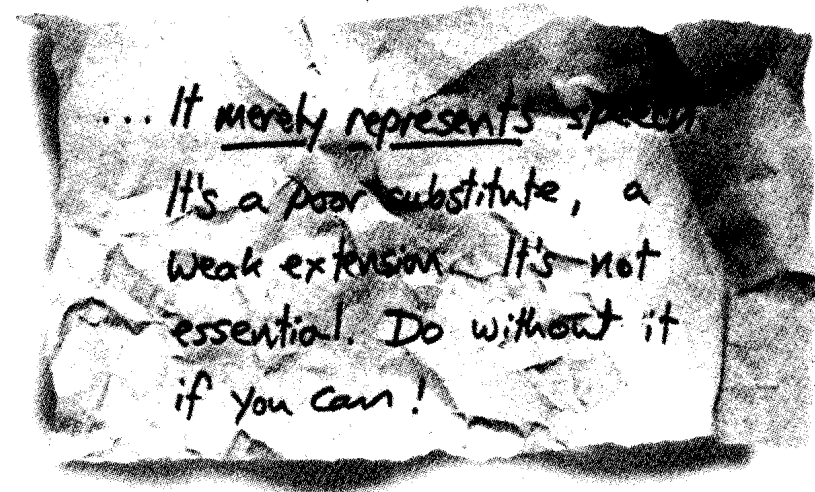 ... It merely represents speech.
It's a poor substitute, a
weak extension. It's not
essential. Do without it
if you can!